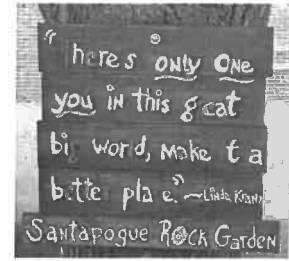 "here's only one
you in this g eat
big word, make t a
bette pla e." ~Linda Kranz
Santapogue Rock Garden